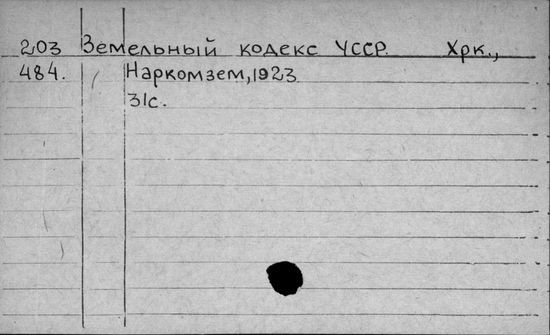 203 Земельный кодекс УССР. Хрк.,
484. Наркомзем, 1923
31с.